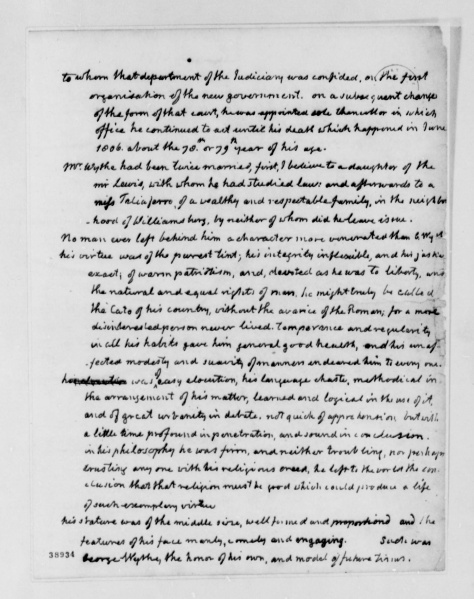 to whom that department of the Judiciary was confided, on the first
organisation of the new government. on a subsequent change
of the form of that court, he was appointed sole chancellor in which
office he continued to act until his death which happened in June
1806. about the 78th or 79th year of his age.
Mr. Wythe had been twice married, first, I believe to a daughter of the
mr Lewis, with whom he had studied law: and afterwards to a
miss Taliaferro, of a wealthy and respectable family, in the neighbor
-hood of Williamsburg, by neither of whom did he leave issue.
No man ever left behind him a character more venerated than G. Wythe
his virtue was of the purest tint; his integrity inflexible, and his justice
exact; of warm patriotism, and, devoted as he was to liberty, and
the natural and equal rights of man, he might truly be called
the Cato of his country, without the avarice of the Roman; for a more
disinterested person never lived. temperance and regularity
in all his habits gave him general good health, and his unaf-
-fected modesty and suavity of manners endeared him to every one.
he was of easy elocution, his language chaste, methodical in
the arrangement of his matter, learned and logical in the use of it,
and of great urbanity in debate. not quick of apprehension but with
a little time profound in penetration, and sound in conclusion.
in his philosophy he was firm, and neither troubling, nor perhaps
trusting any one with his religious creed, he left to the world the con-
clusion that that religion must be good which could produce a life
of such exemplary virtue
his stature was of the middle size, well formed and proportioned and the
features of his face manly, comely and engaging. Such was
George Wythe, the honor of his own, and model of future times.
38934